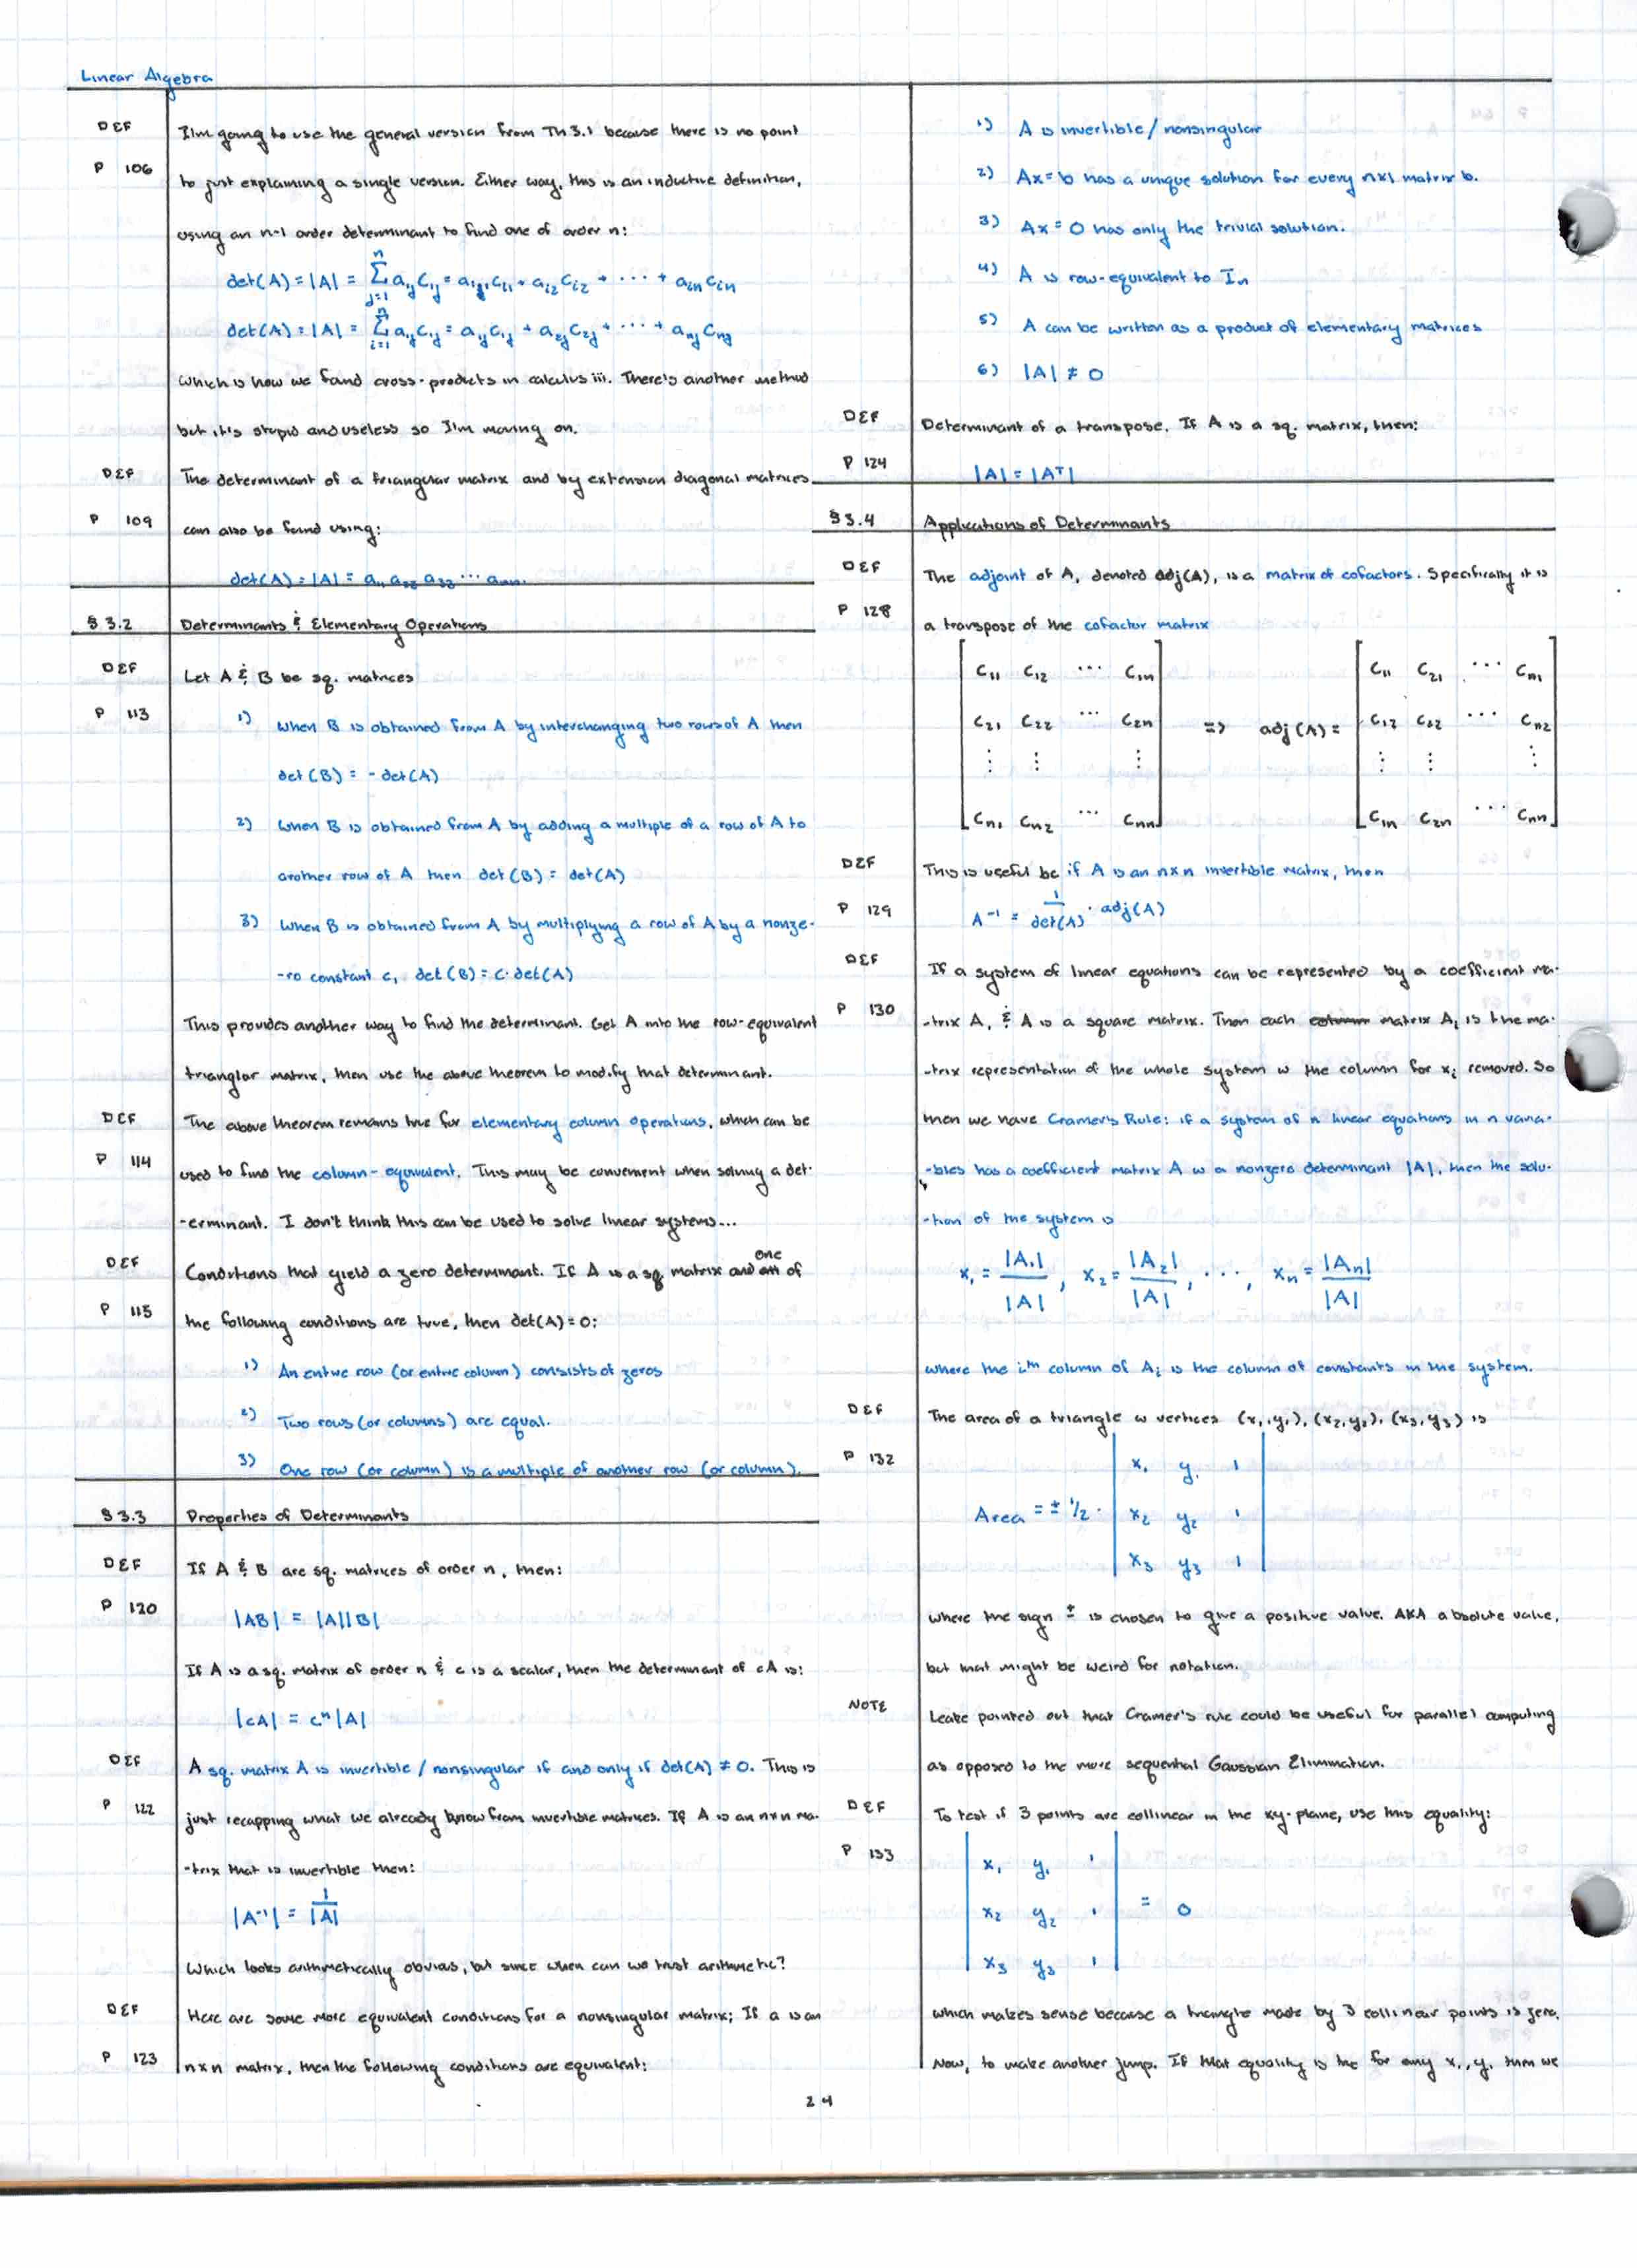 Linear Algebra
DEF I'm going to use the general version from Th 3.1 because there is no point
P 106 to just explaining a single version. Either way, this is an inductive definition,
using an n-1 order determinant to find one of order n:
det(A) = |A| = Σ_{j=1}^{n} a_{ij} C_{ij} = a_{i1} C_{i1} + a_{i2} C_{i2} + ⋯ + a_{in} C_{in}
det(A) = |A| = Σ_{i=1}^{n} a_{ij} C_{ij} = a_{1j} C_{1j} + a_{2j} C_{2j} + ⋯ + a_{nj} C_{nj}
which is how we found cross-products in calculus iii. There's another method
but it's stupid and useless so I'm moving on.
DEF The determinant of a triangular matrix and by extension diagonal matrices
P 109 can also be found using:
det(A) = |A| = a₁₁ a₂₂ a₃₃ ⋯ aₙₙ.
§ 3.2 Determinants & Elementary Operations
DEF Let A & B be sq. matrices
P 113 1) When B is obtained from A by interchanging two rows of A then
det(B) = -det(A)
2) When B is obtained from A by adding a multiple of a row of A to
another row of A then det(B) = det(A)
3) When B is obtained from A by multiplying a row of A by a nonze-
-ro constant c, det(B) = c·det(A)
This provides another way to find the determinant. Get A into the row-equivalent
trianglar matrix, then use the above theorem to modify that determinant.
DEF The above theorem remains true for elementary column operations, which can be
P 114 used to find the column-equivalent. This may be convenient when solving a det-
-erminant. I don't think this can be used to solve linear systems...
DEF Conditions that yield a zero determinant. If A is a sq matrix and one of
P 115 the following conditions are true, then det(A) = 0:
1) An entire row (or entire column) consists of zeros
2) Two rows (or columns) are equal.
3) One row (or column) is a multiple of another row (or column).
§ 3.3 Properties of Determinants
DEF If A & B are sq. matrices of order n, then:
P 120 |AB| = |A||B|
If A is a sq. matrix of order n & c is a scalar, then the determinant of cA is:
|cA| = cⁿ|A|
DEF A sq. matrix A is invertible / nonsingular if and only if det(A) ≠ 0. This is
P 122 just recapping what we already know from invertible matrices. If A is an n×n ma-
-trix that is invertible then:
|A⁻¹| = 1/|A|
Which looks arithmetically obvious, but since when can we trust arithmetic?
DEF Here are some more equivalent conditions for a nonsingular matrix; If a is an
P 123 n×n matrix, then the following conditions are equivalent:
1) A is invertible / nonsingular
2) Ax = b has a unique solution for every n×1 matrix b.
3) Ax = 0 has only the trivial solution.
4) A is row-equivalent to Iₙ
5) A can be written as a product of elementary matrices
6) |A| ≠ 0
DEF Determinant of a transpose. If A is a sq. matrix, then:
P 124 |A| = |Aᵀ|
§ 3.4 Applications of Determinants
DEF The adjoint of A, denoted adj(A), is a matrix of cofactors. Specifically it is
P 128 a transpose of the cofactor matrix
C₁₁ C₁₂ ⋯ C₁ₙ C₁₁ C₂₁ ⋯ Cₙ₁
C₂₁ C₂₂ ⋯ C₂ₙ => adj(A) = C₁₂ C₂₂ ⋯ Cₙ₂
⋮ ⋮ ⋮ ⋮ ⋮ ⋮
Cₙ₁ Cₙ₂ ⋯ Cₙₙ C₁ₙ C₂ₙ ⋯ Cₙₙ
DEF This is useful bc if A is an n×n invertible matrix, then
P 129 A⁻¹ = 1/det(A) · adj(A)
DEF If a system of linear equations can be represented by a coefficient ma-
P 130 -trix A, & A is a square matrix. Then each matrix Aᵢ is the ma-
-trix representation of the whole system w the column for xᵢ removed. So
then we have Cramer's Rule: if a system of n linear equations in n varia-
-bles has a coefficient matrix A w a nonzero determinant |A|, then the solu-
-tion of the system is
x₁ = |A₁|/|A|, x₂ = |A₂|/|A|, ⋯, xₙ = |Aₙ|/|A|
where the iᵗʰ column of Aᵢ is the column of constants in the system.
DEF The area of a triangle w vertices (x₁,y₁), (x₂,y₂), (x₃,y₃) is
P 132 x₁ y₁ 1
Area = ± 1/2 · x₂ y₂ 1
x₃ y₃ 1
where the sign ± is chosen to give a positive value. AKA absolute value,
but that might be weird for notation.
NOTE Leake pointed out that Cramer's rule could be useful for parallel computing
as opposed to the more sequential Gaussian Elimination.
DEF To test if 3 points are collinear in the xy-plane, use this equality:
P 133 x₁ y₁ 1
x₂ y₂ 1 = 0
x₃ y₃ 1
which makes sense because a triangle made by 3 collinear points is zero.
Now, to make another jump. If that equality is true for any x₁, y₁ then we
24